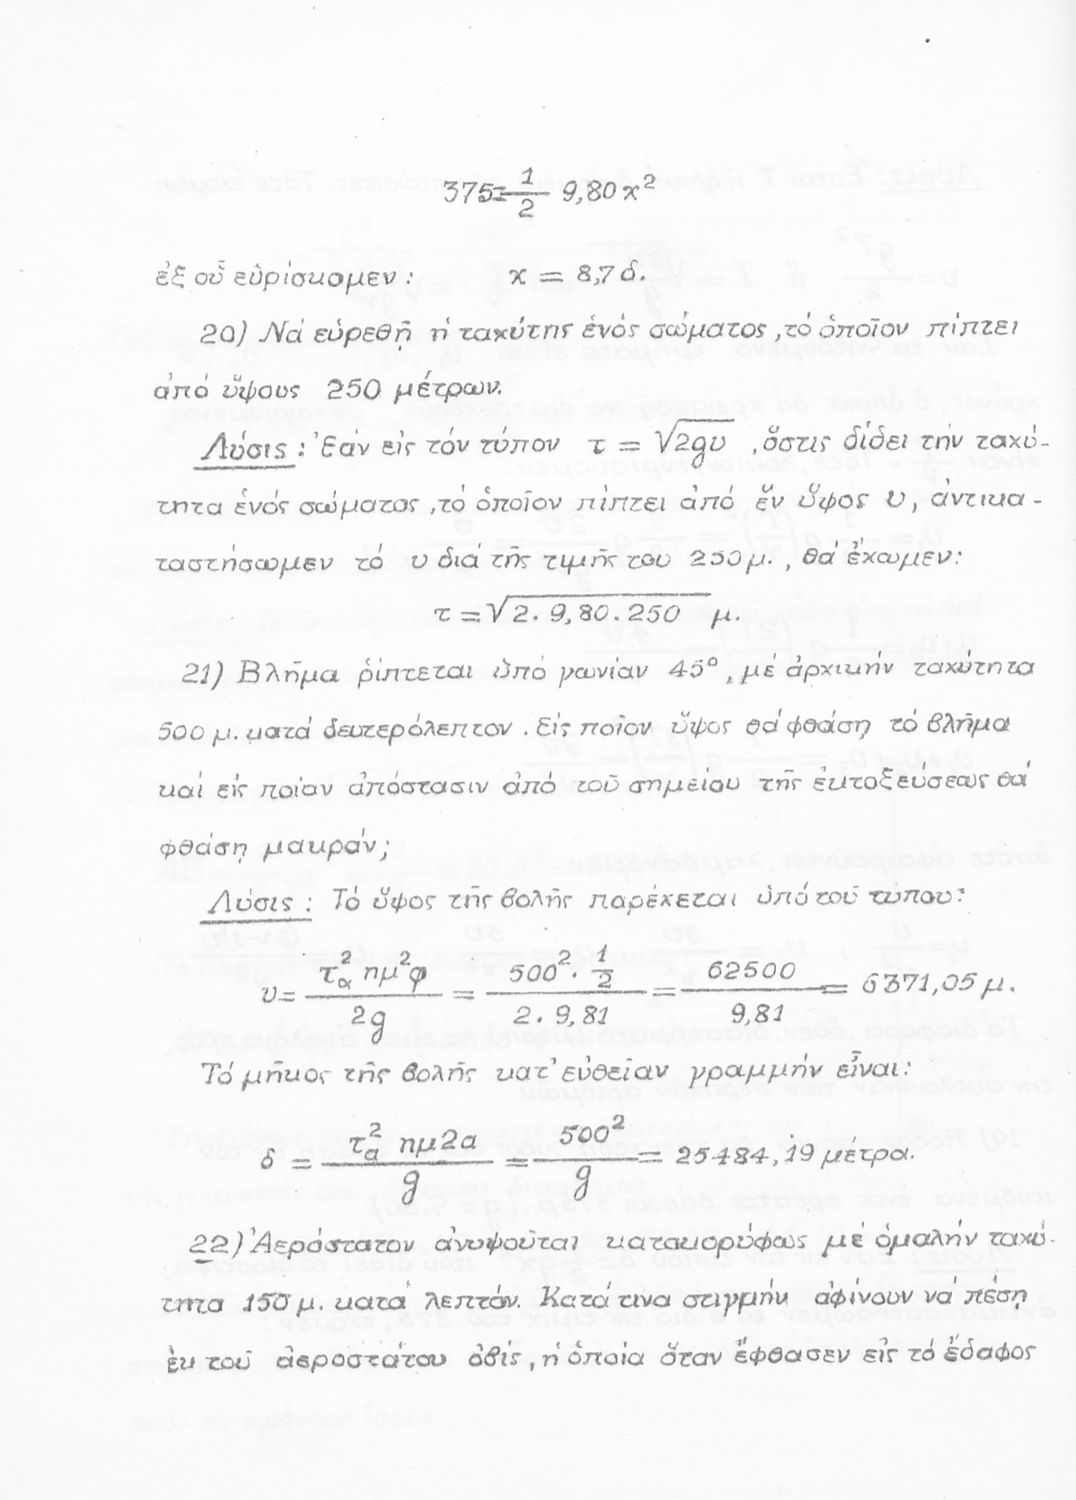 375 = 1/2 9,80 x²
ἐξ οὗ εὑρίσκομεν : x = 8,7 δ.
20) Νά εὑρεθῇ ἡ ταχύτης ἑνός σώματος, τό ὁποῖον πίπτει
ἀπό ὕψους 250 μέτρων.
Λύσις : Ἐάν εἰς τόν τύπον τ = √2gυ , ὅστις δίδει τήν ταχύ-
τητα ἑνός σώματος, τό ὁποῖον πίπτει ἀπό ἕν ὕψος υ, ἀντικα-
ταστήσωμεν τό υ διά τῆς τιμῆς του 250 μ., θά ἔχωμεν:
τ = √2. 9,80. 250 μ.
21) Βλῆμα ῥίπτεται ὑπό γωνίαν 45°, μέ ἀρχικήν ταχύτητα
500 μ. κατά δευτερόλεπτον. Εἰς ποῖον ὕψος θά φθάσῃ τό βλῆμα
καί εἰς ποίαν ἀπόστασιν ἀπό τοῦ σημείου τῆς ἐκτοξεύσεως θά
φθάσῃ μακράν;
Λύσις : Τό ὕψος τῆς βολῆς παρέχεται ὑπό τοῦ τύπου:
υ = τα² ημ²φ / 2g = 500² · 1/2 / 2. 9,81 = 62500 / 9,81 = 6371,05 μ.
Τό μῆκος τῆς βολῆς κατ' εὐθεῖαν γραμμήν εἶναι:
δ = τα² ημ2α / g = 500² / g = 25484,19 μέτρα.
22) Ἀερόστατον ἀνυψοῦται κατακορύφως μέ ὁμαλήν ταχύ-
τητα 150 μ. κατά λεπτόν. Κατά τινα στιγμήν ἀφίνουν νά πέσῃ
ἐκ τοῦ ἀεροστάτου ὀβίς, ἡ ὁποία ὅταν ἔφθασεν εἰς τό ἔδαφος